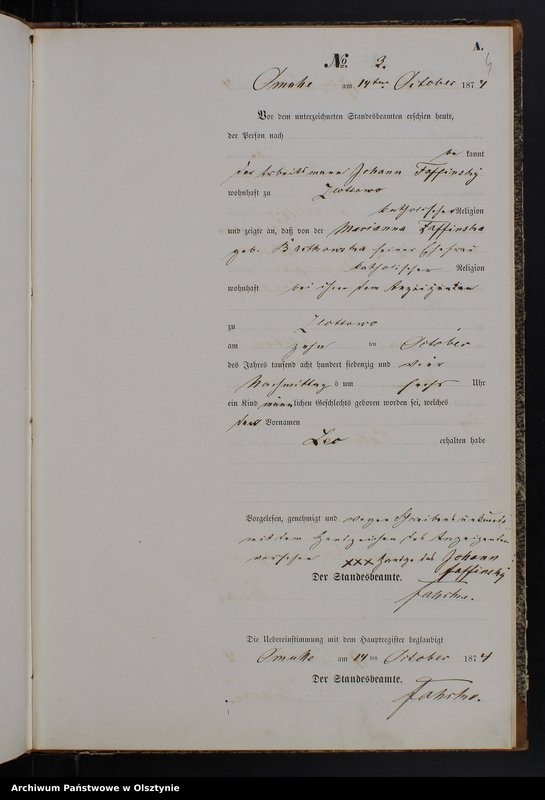 A.
4
No. 3.
am 14ten October 1874
Vor dem unterzeichneten Standesbeamten erschien heute,
der Person nach
be kannt
der Arbeitsmann Johann Faffinsky
wohnhaft zu Zlottowo
katholischer Religion
und zeigte an, daß von der Marianna Faffinska
geb. Bartkowska seiner Ehefrau
katholischer Religion
wohnhaft bei ihm dem Anzeigenden
zu Zlottowo
am zehn ten October
des Jahres tausend acht hundert siebenzig und vier
Nachmittag s um sechs Uhr
ein Kind männlichen Geschlechts geboren worden sei, welches
den Vornamen
Leo erhalten habe
Vorgelesen, genehmigt und wegen Schreibensunkunde
mit dem Handzeichen des Anzeigenden
versehen xxx Handz. des Johann
Faffinsky
Der Standesbeamte.
Die Uebereinstimmung mit dem Hauptregister beglaubigt
am 14 ten October 1874
Der Standesbeamte.
Archiwum Państwowe w Olsztynie